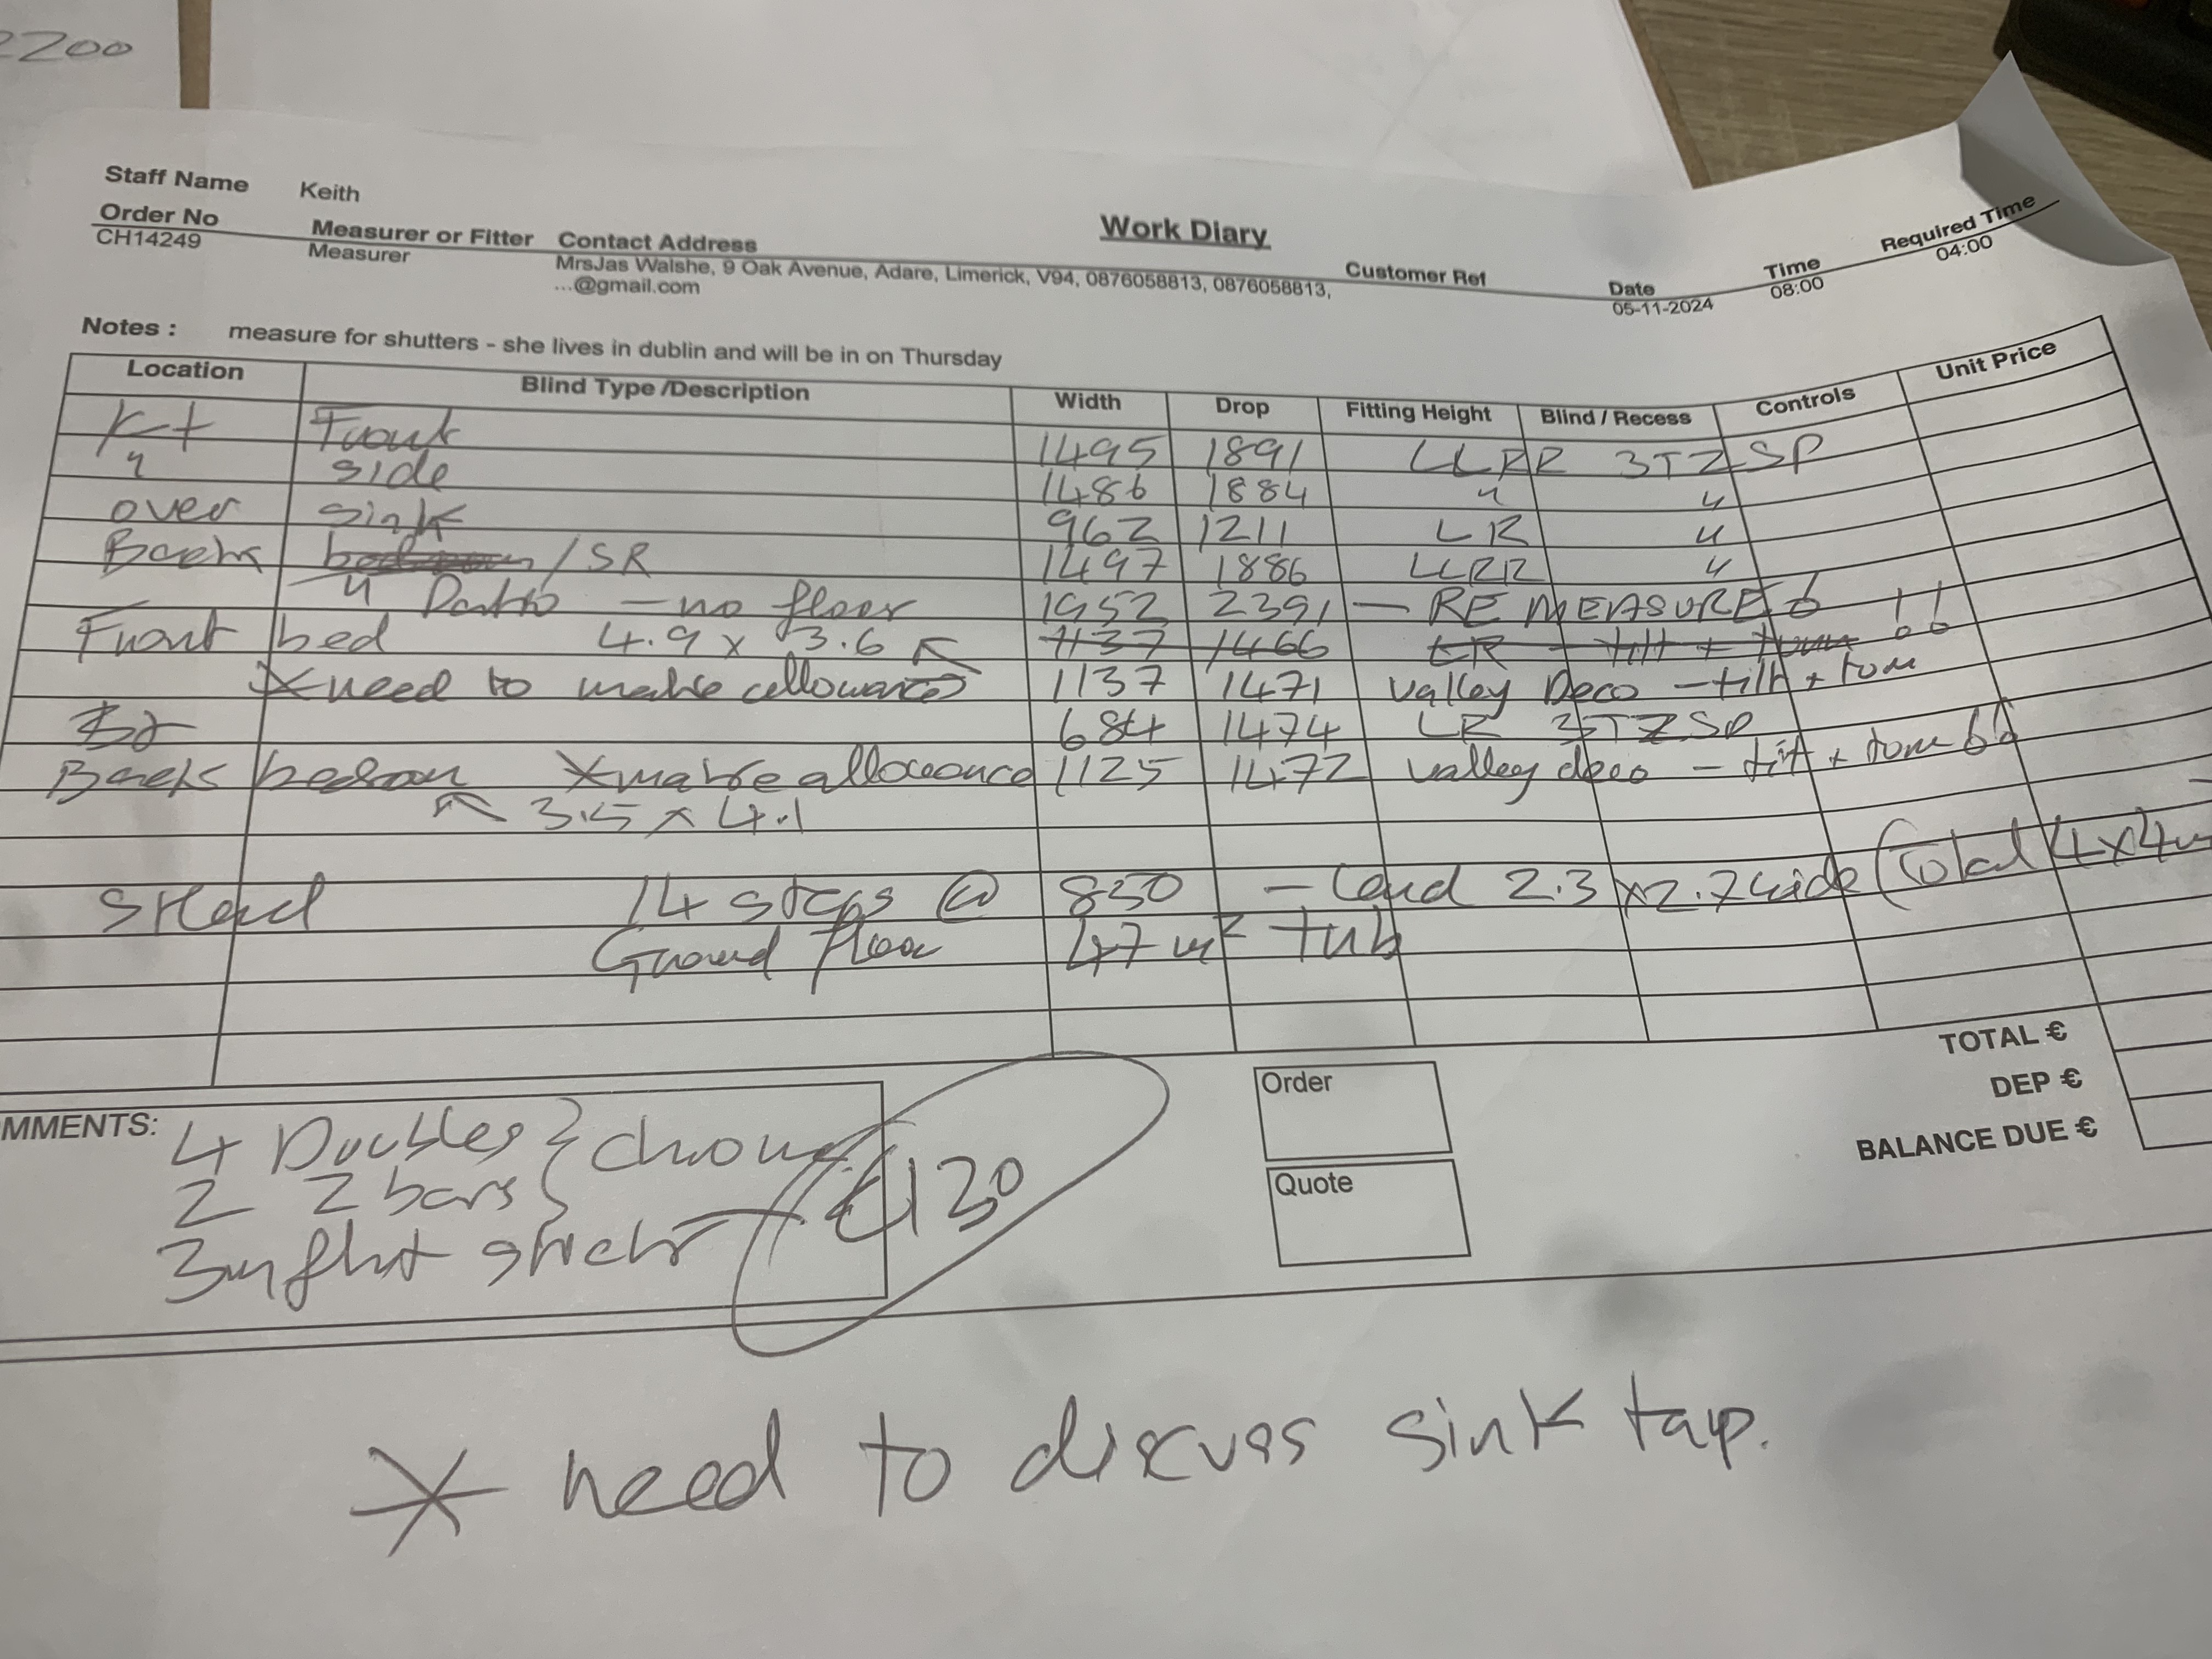 2200
Work Diary
Staff Name Keith
Order No Measurer or Fitter Contact Address Customer Ref Date Time Required Time
CH14249 Measurer MrsJas Walshe, 9 Oak Avenue, Adare, Limerick, V94, 0876058813, 0876058813, 05-11-2024 08:00 04:00
...@gmail.com
Notes : measure for shutters - she lives in dublin and will be in on Thursday
Location Blind Type /Description Width Drop Fitting Height Blind / Recess Controls Unit Price
Kt Front 1495 1891 LLRR 3TZSP
" side 1486 1884 " "
over sink 962 1211 LR "
Back /SR 1497 1886 LLRR "
" Patio - no floor 1952 2391 - RE MEASURE !!
Front bed 4.9 x 3.6 1137 1466 LR - tilt + turn
*need to make allowances 1137 1471 valley Deco - tilt + turn
684 1474 LR 3TZSP
Back bedroom *make allowance 1125 1472 valley deco - tilt + turn
3.5 x 4.1
SHand 14 steps @ 850 - Land 2.3 x 2.7 wide (Total 4x4m
Ground floor 47 m² tub
MMENTS: 4 Doubles } chrome
2 Z bars
3m flat €130
Order
Quote
TOTAL €
DEP €
BALANCE DUE €
* need to discuss sink tap.